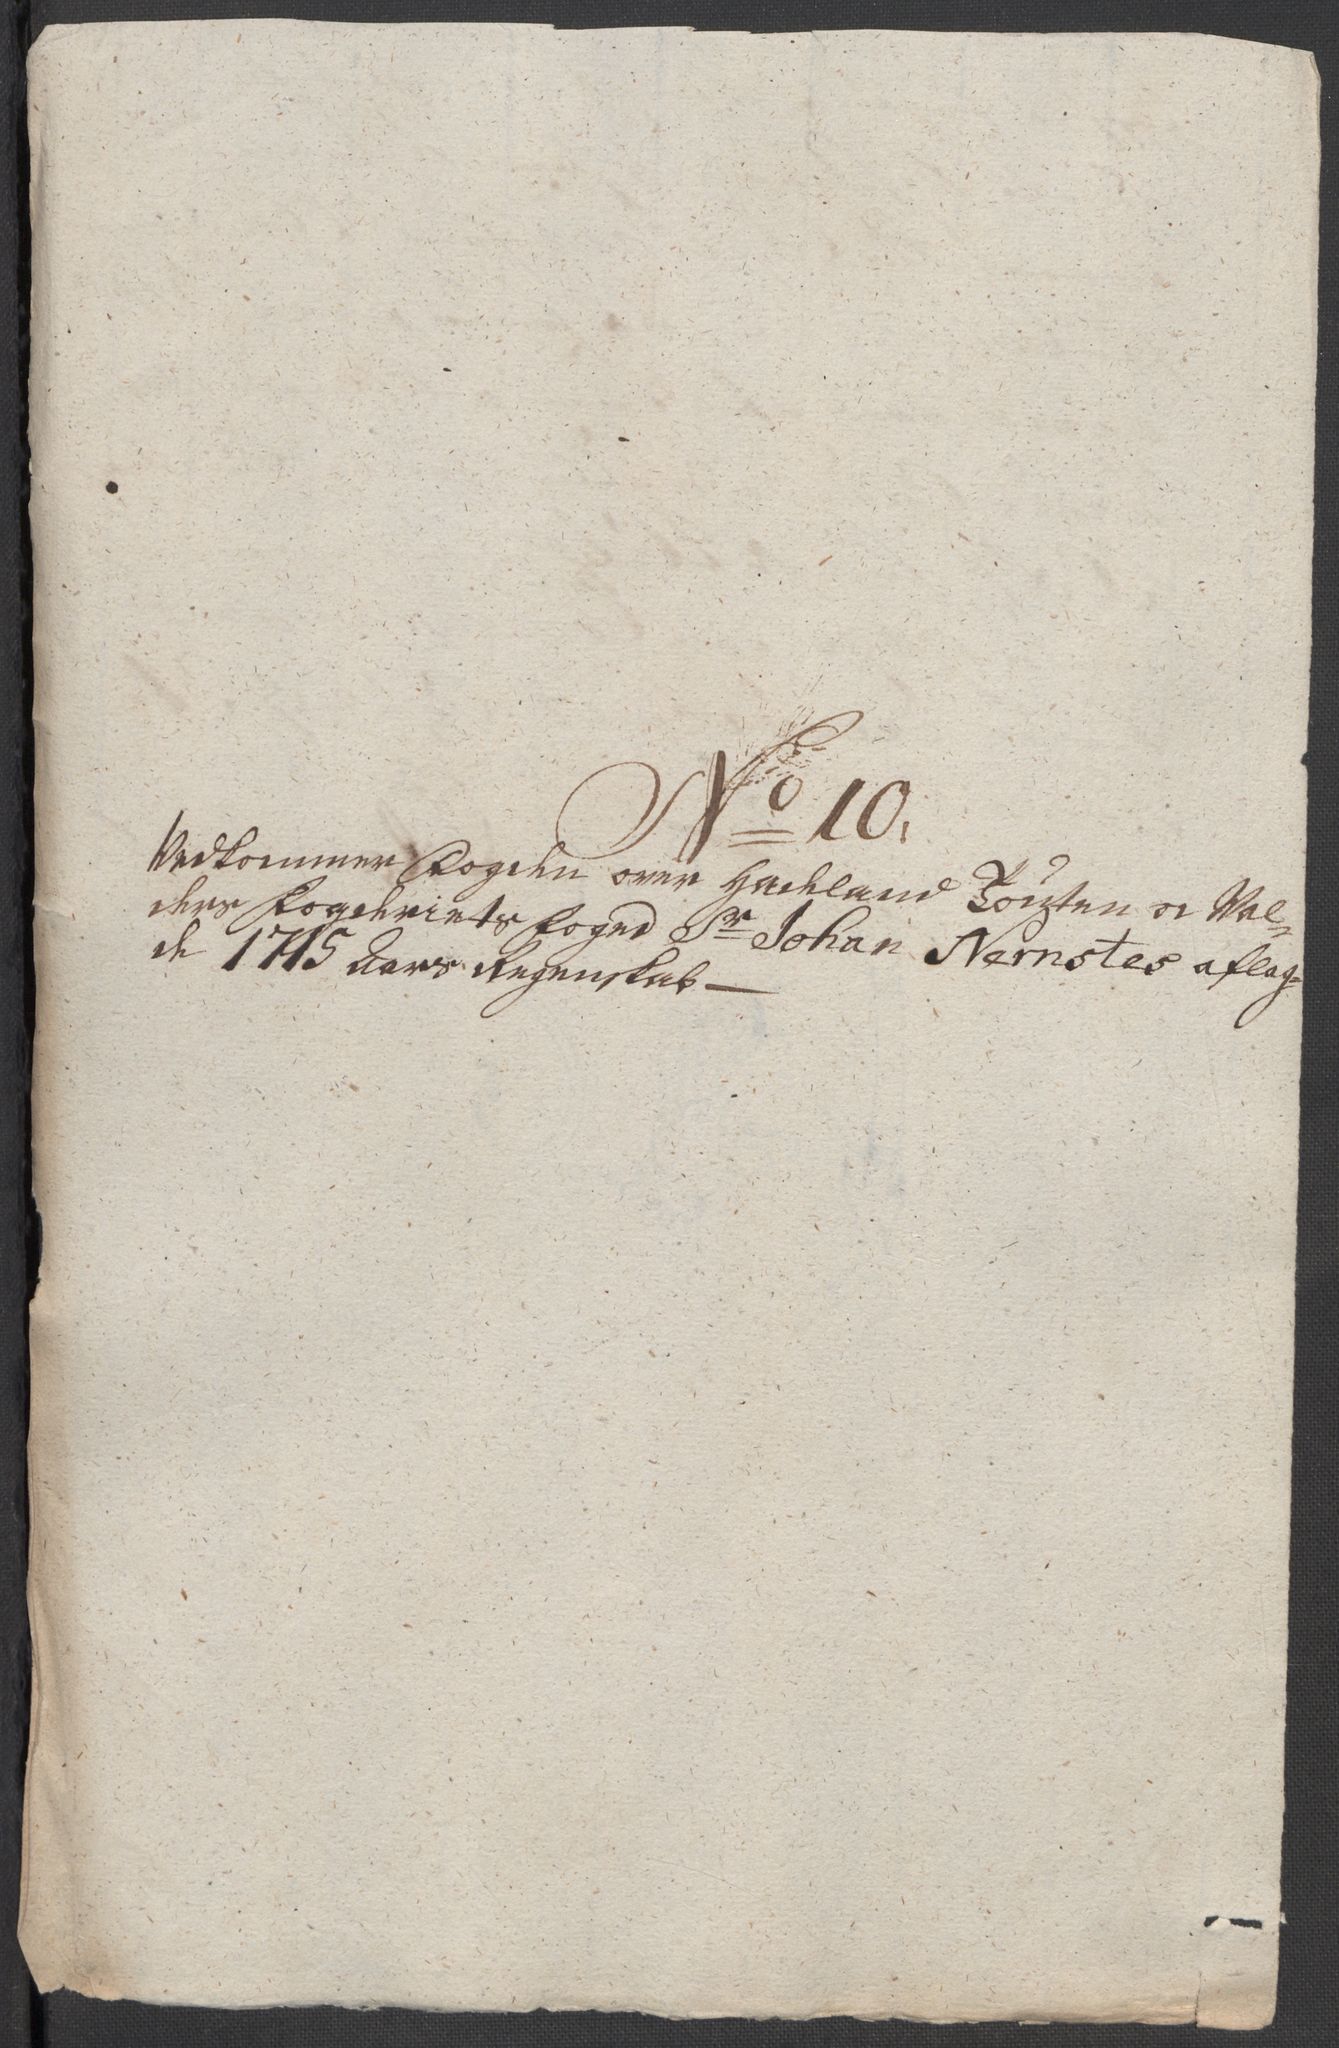 No 10.
Vedkommer Fogden over Hadeland Toten oc Val-
ders Fogderiets Foged Sr Johan Nernstes aflag-
de 1715 Aars Regenskab